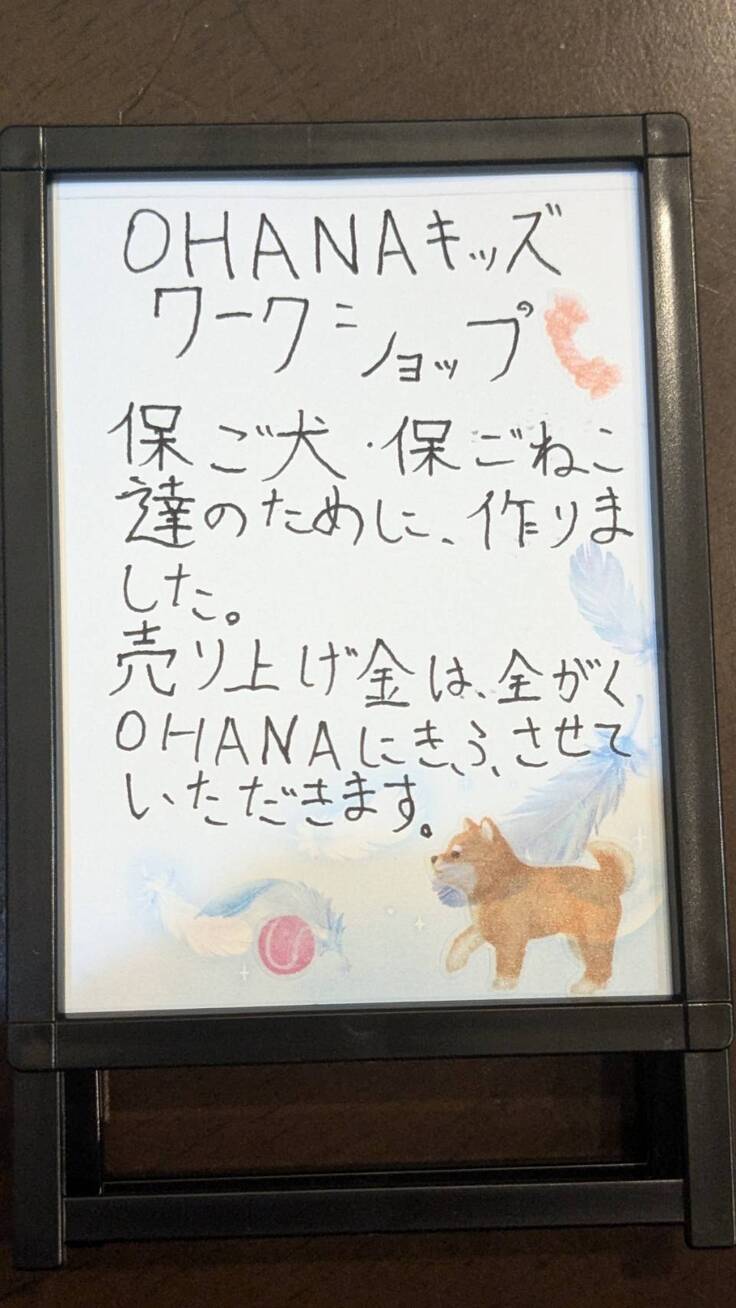 OHANAキッズ
ワークショップ
保ご犬・保ごねこ
達のために、作りま
した。
売り上げ金は、全がく
OHANAにきふさせて
いただきます。